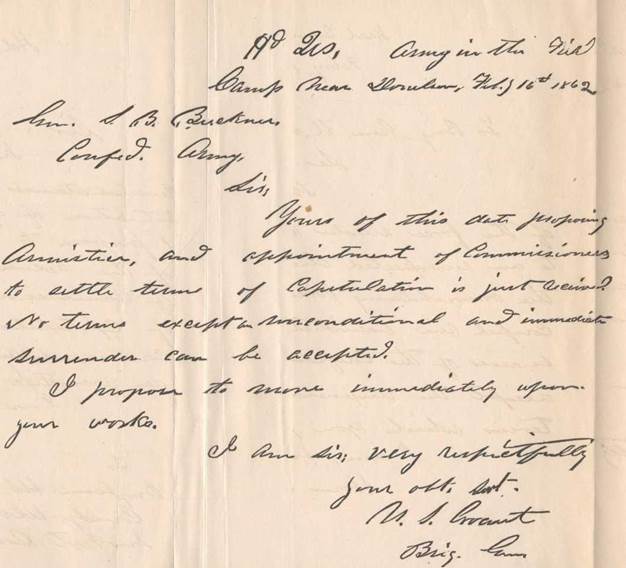 Hd Qrs, Army in the Field
Camp Near Donelson, Feby 16th 1862
Gen. S. B. Buckner,
Confed. Army,
Sir,
Yours of this date proposing
Armistice, and appointment of Commissioners
to settle terms of Capitulation is just received.
No terms except an unconditional and immediate
surrender can be accepted.
I propose to move immediately upon
your works.
I am sir; very respectfully
your obt. svt.
U. S. Grant
Brig. Gen